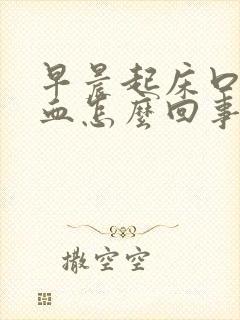 早晨起床口
血怎麼回事
撒空空